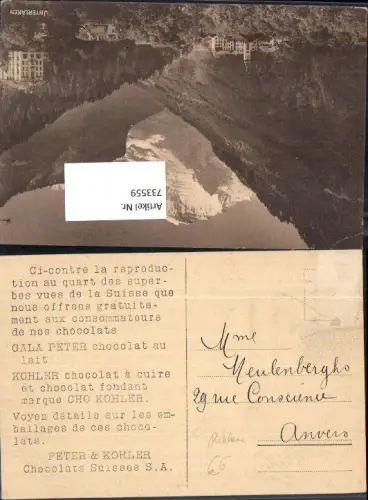 INTERLAKEN
Artikel Nr.
733559
Ci-contre la reproduc-
tion au quart des super-
bes vues de la Suisse que
nous offrons gratuite-
ment aux consommateurs
de nos chocolats
GALA PETER chocolat au
lait
KOHLER chocolat à cuire
et chocolat fondant
marque CHO KOHLER.
Voyez détails sur les em-
ballages de ces choco-
lats.
PETER & KOHLER
Chocolats Suisses S.A.
Mme
Meulenberghs
29 rue Conscience
Anvers
66